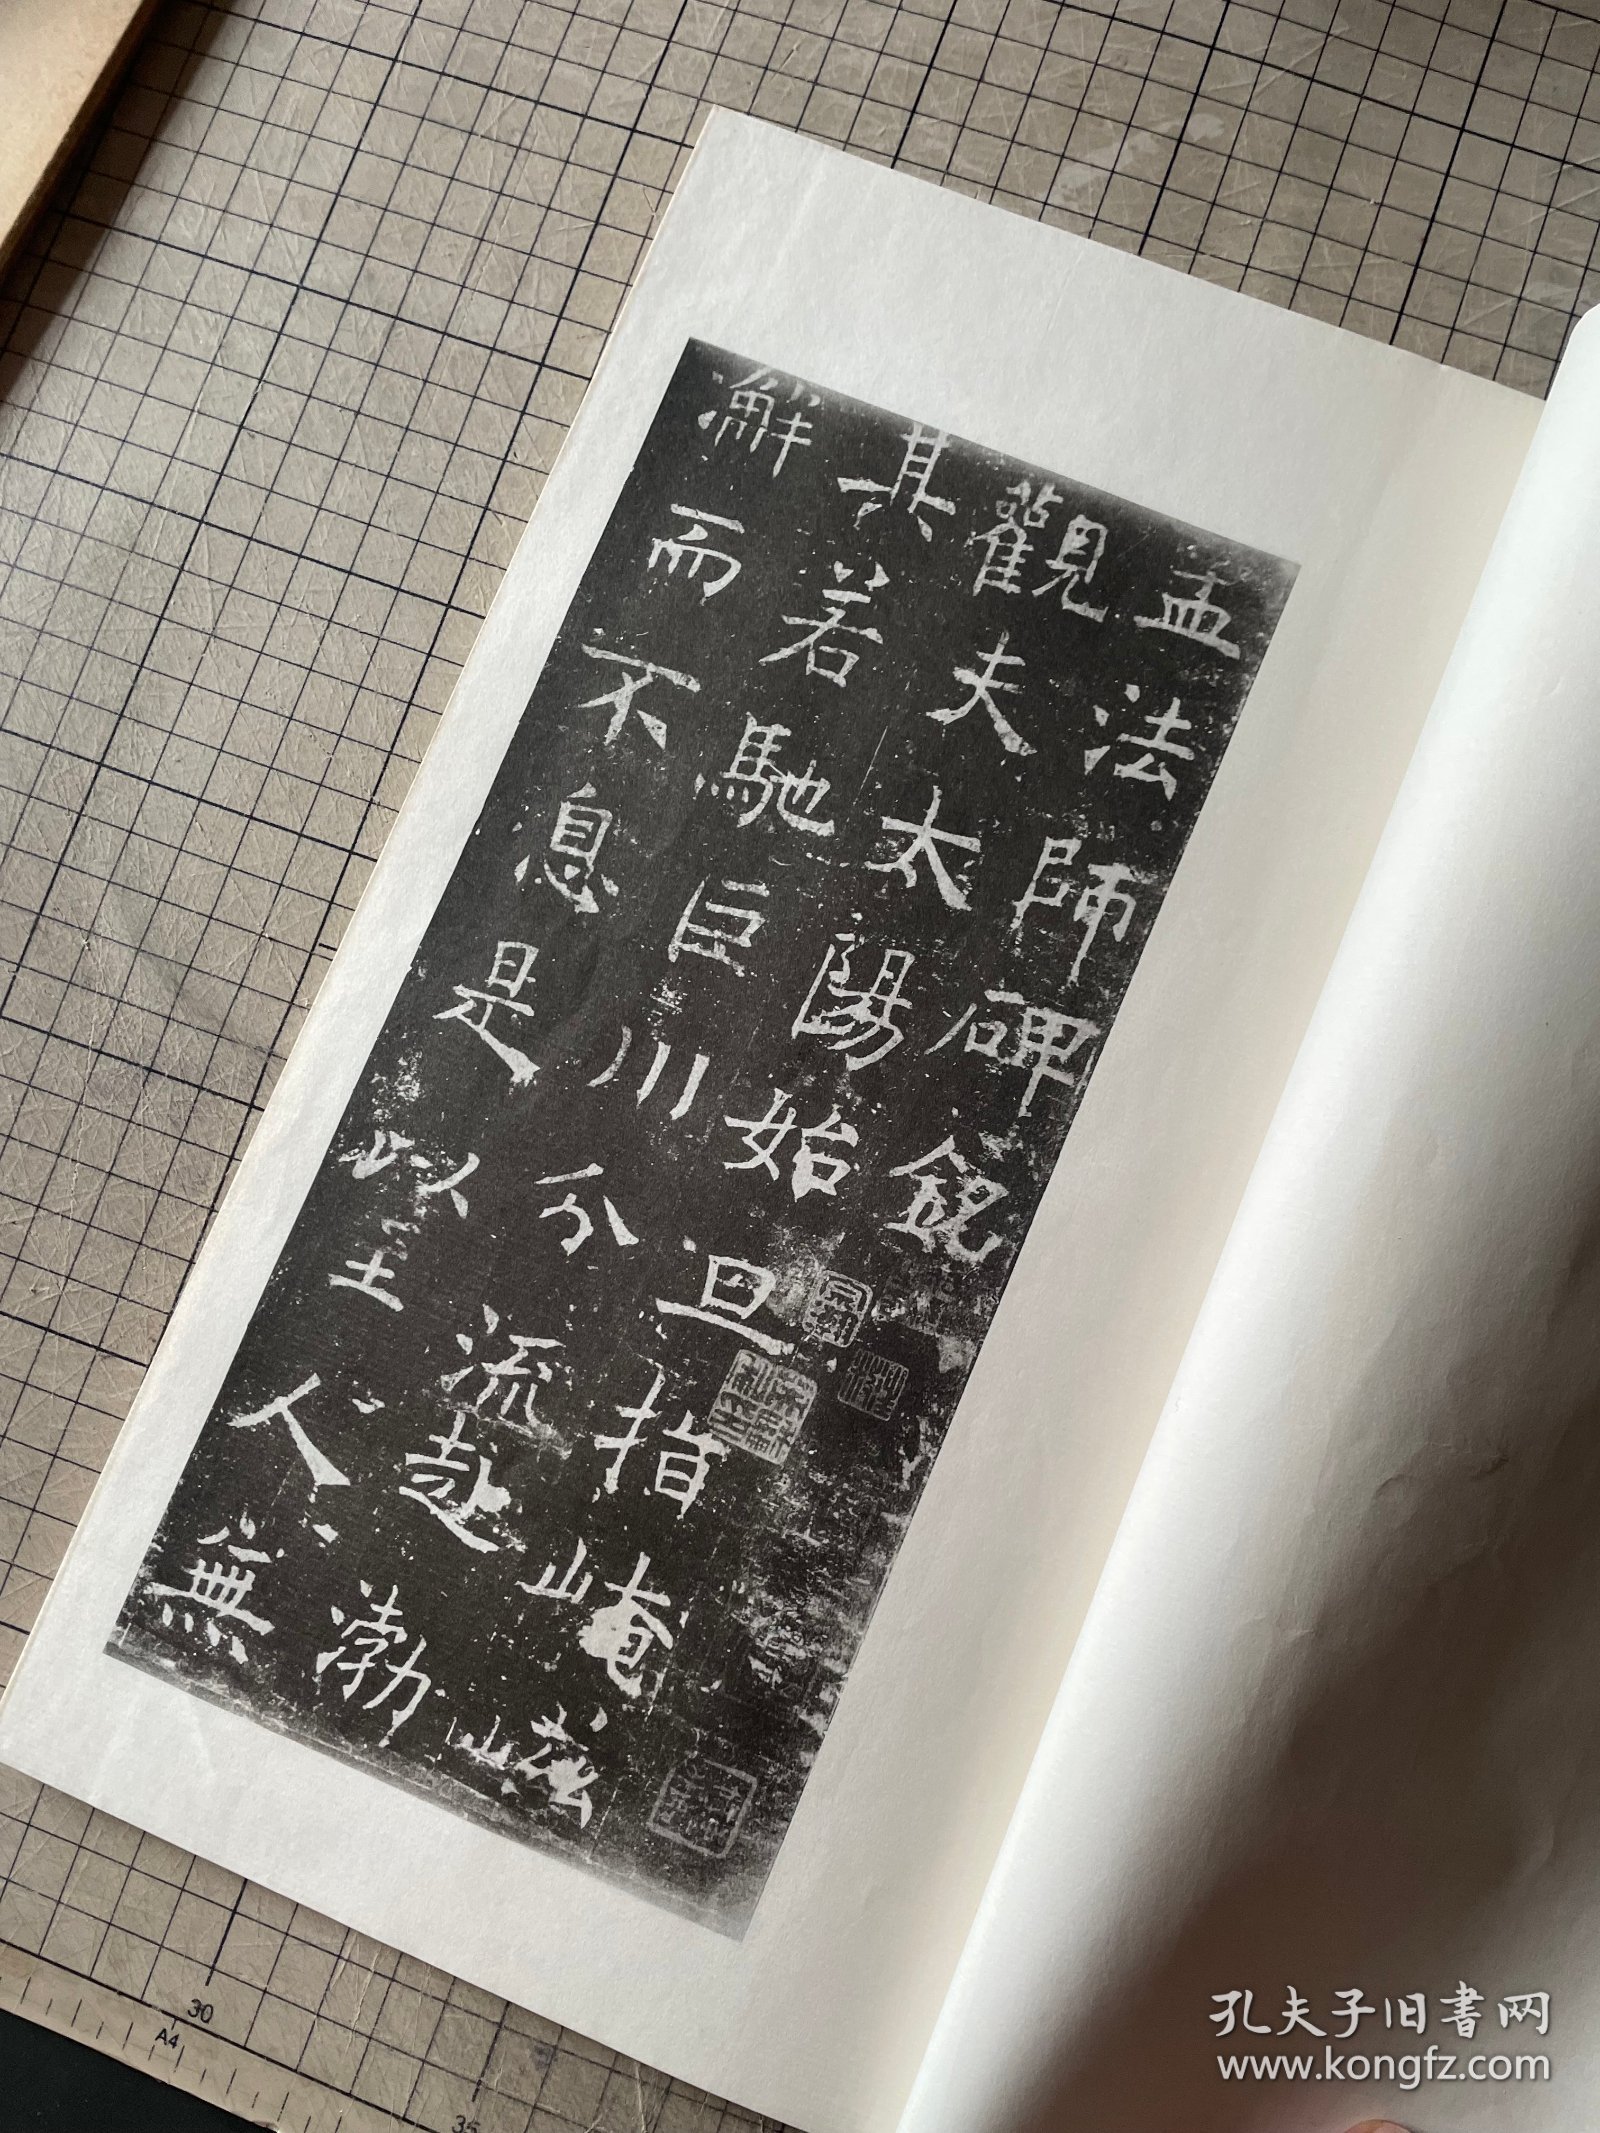 孟法師碑銘
觀夫太陽始旦指崦嵫
其若馳巨川分流赴渤
澥而不息是以至人無
30
A4
35
孔夫子旧書网
www.kongfz.com